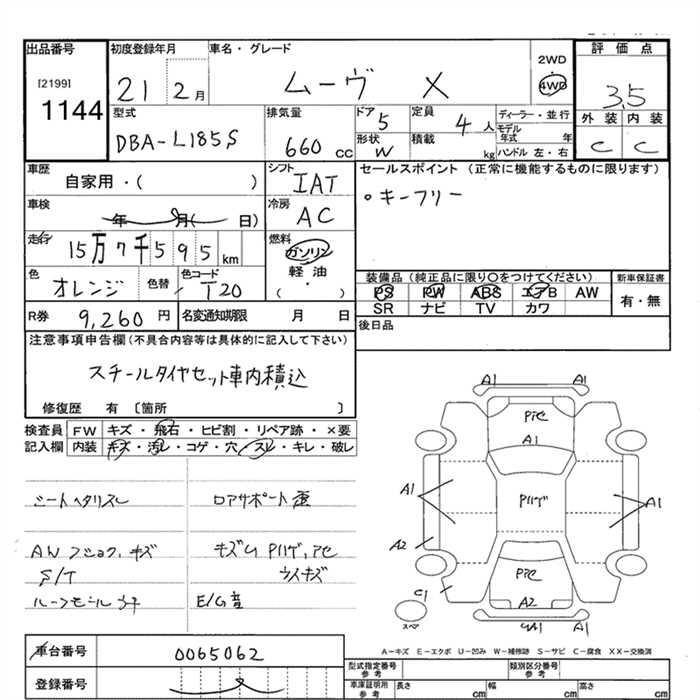 出品番号 初度登録年月 車名・グレード 評価点
[2199]
1144
21 2月 ムーヴ X 2WD 4WD 3.5
型式 排気量 ドア 定員 ディーラー・並行 外装 内装
DBA-L185S 660cc 5 4人 モデル年式 年 C C
形状 W 積載 kg ハンドル 左・右
車歴 シフト セールスポイント(正常に機能するものに限ります)
自家用・( ) IAT ・キーフリー
車検 冷房
年 月( 日) AC
走行 燃料
15万7千595km ガソリン
軽油
( ・ )
色 色替 色コード 装備品(純正品に限り〇をつけてください) 新車保証書
オレンジ T20 PS PW ABS エアB AW 有・無
SR ナビ TV カワ
R券 9,260円 名変通知期限 月 日 後日品
注意事項申告欄(不具合内容等は具体的に記入して下さい)
スチールタイヤセット車内積込
修復歴 有 〔箇所 〕
検査員 FW キズ・飛石・ヒビ割・リペア跡・×要
記入欄 内装 キズ・汚レ・コゲ・穴・スレ・キレ・破レ
シートヘタリスレ ロアサポート歪
AWフショク、キズ
S/T
E/G音
A1 A1
A1
A1 A1
A2
C1 A2
A1
スペア
A-キズ E-エクボ U-凹み W-補修跡 S-サビ C-腐食 XX-交換済
車台番号 0065062 型式指定番号 参考 類別区分番号 参考
登録番号 車庫証明用 参考 長さ cm 幅 cm 高さ cm